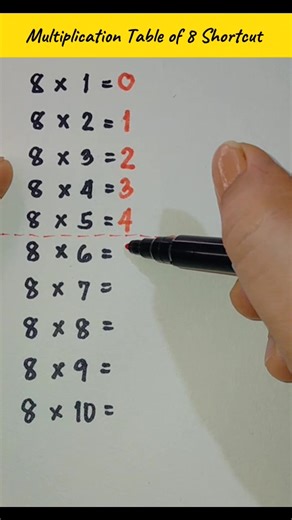 Multiplication Table of 8 Shortcut
8 × 1 = 0
8 × 2 = 1
8 × 3 = 2
8 × 4 = 3
8 × 5 = 4
8 × 6 =
8 × 7 =
8 × 8 =
8 × 9 =
8 × 10 =